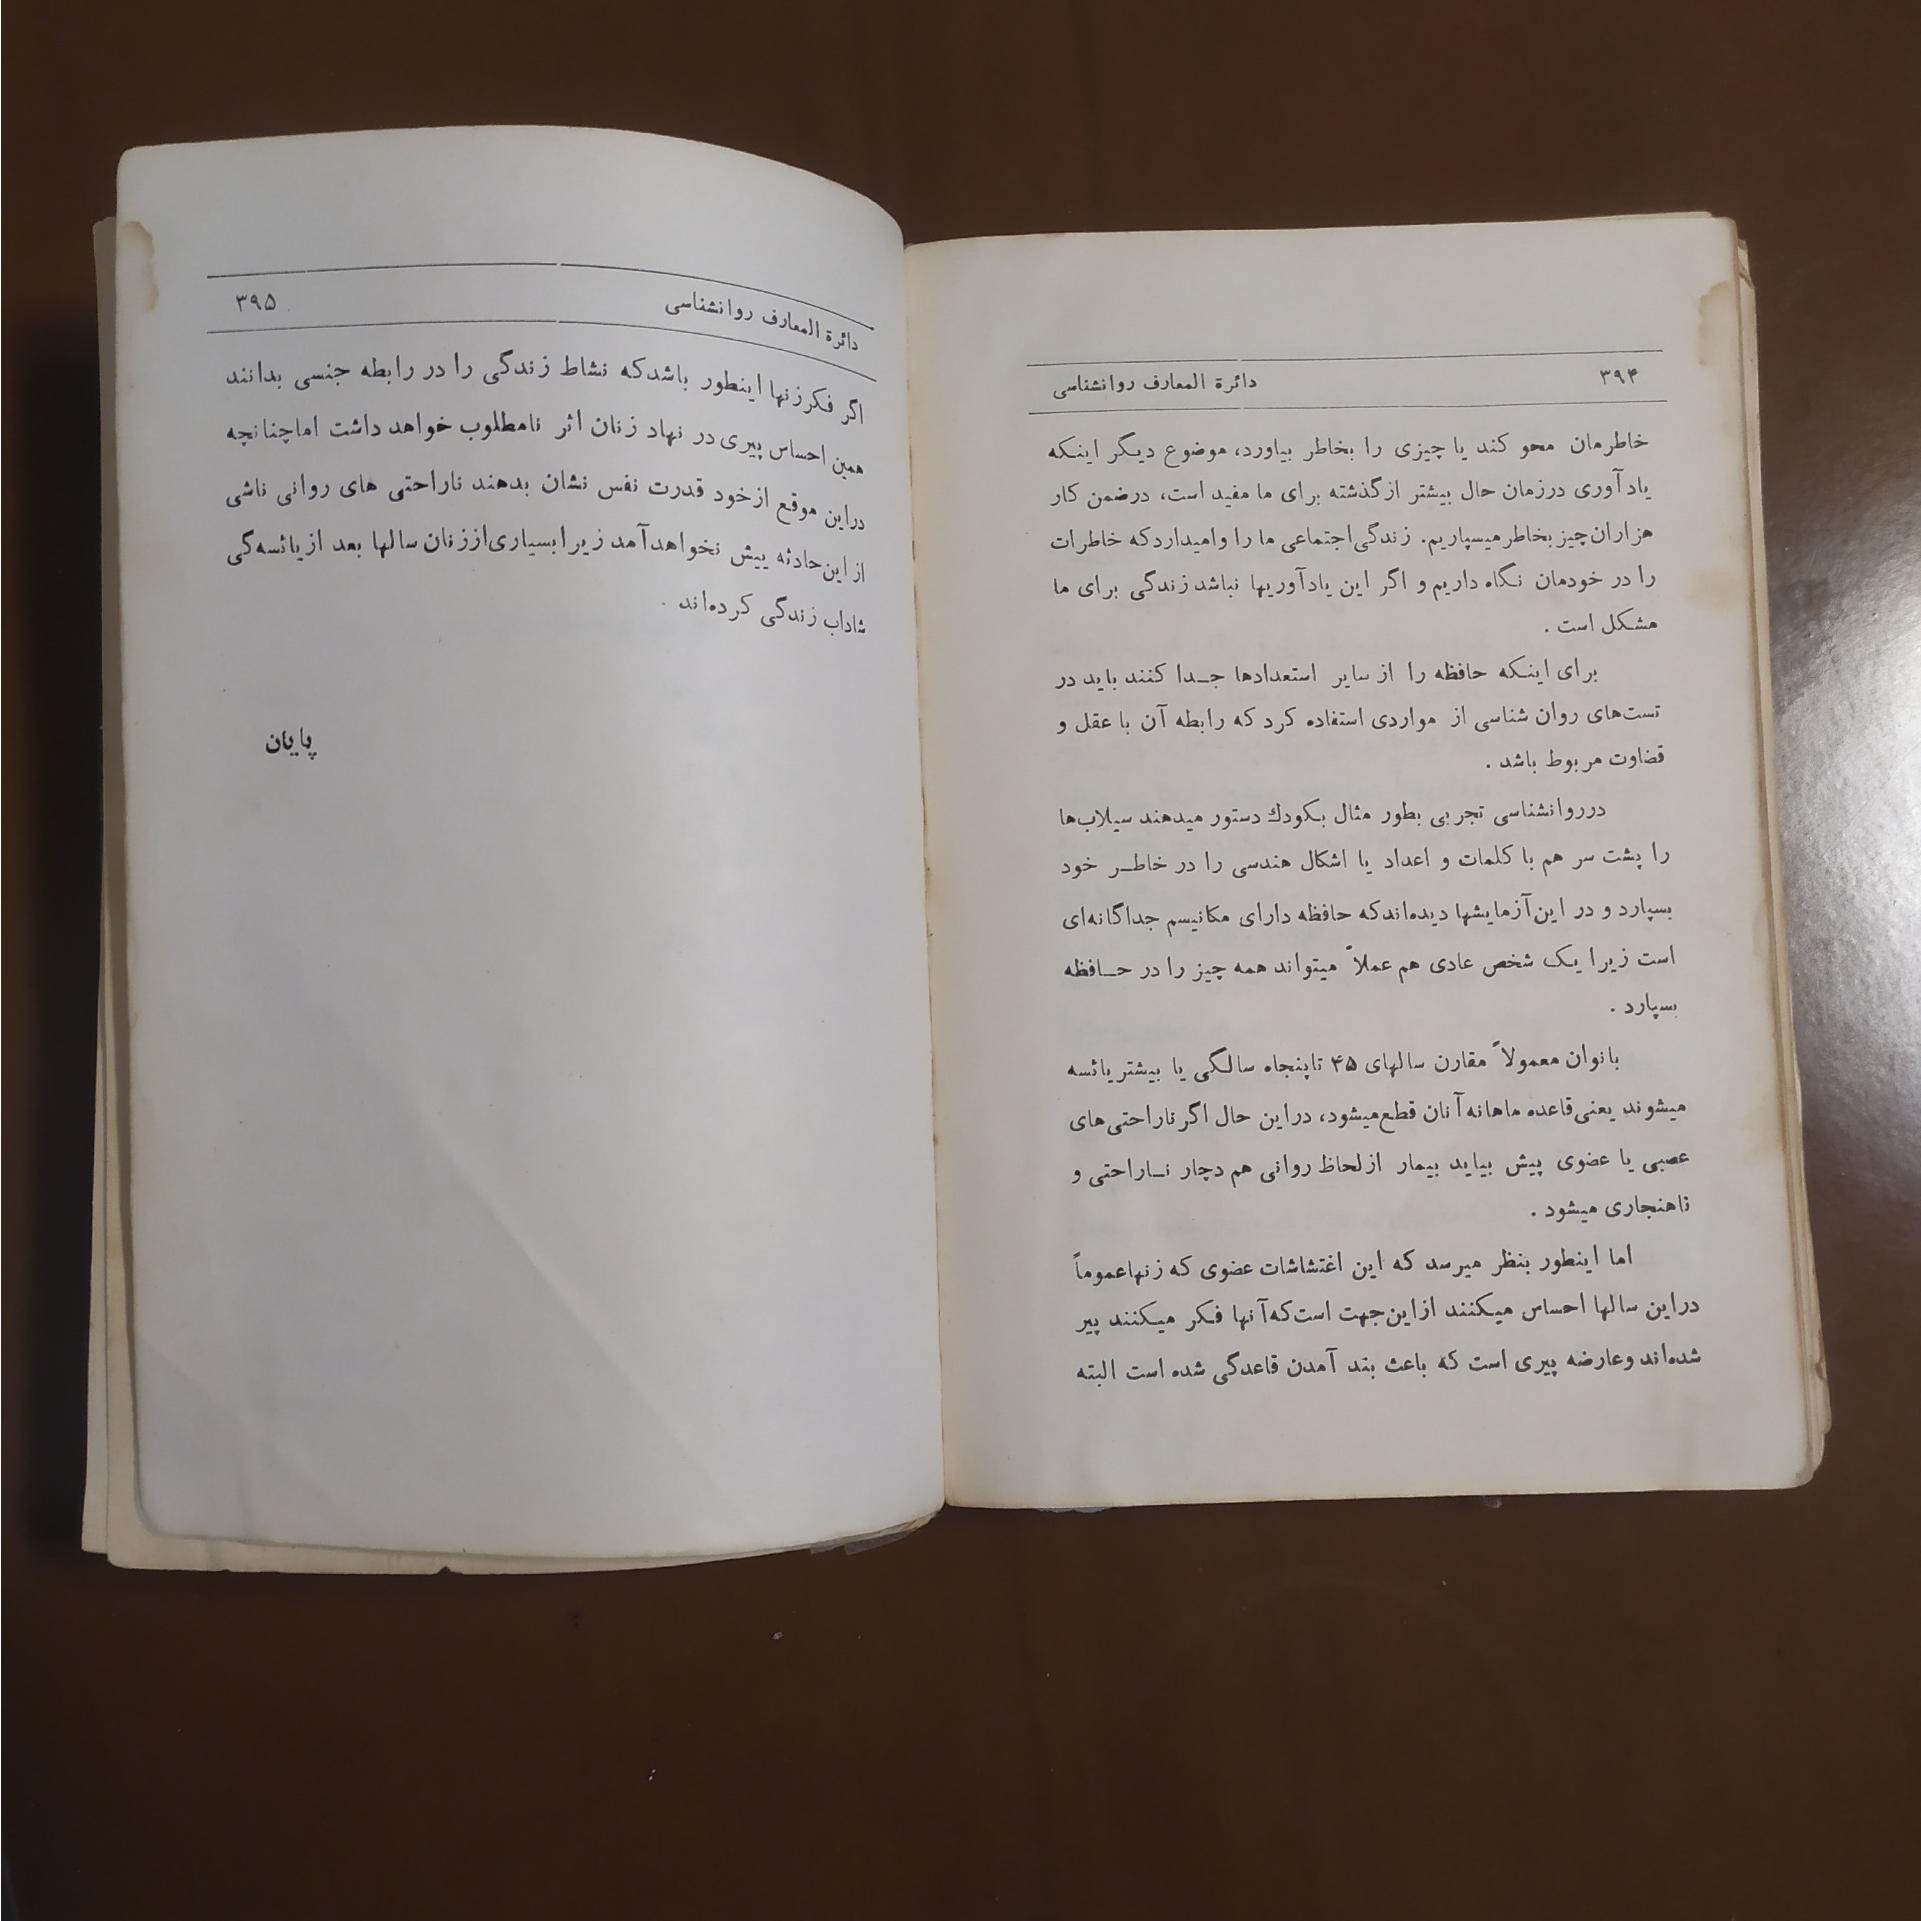 ۳۹۴ دائرة المعارف روانشناسی
خاطرمان محو کند یا چیزی را بخاطر بیاورد، موضوع دیگر اینکه
یادآوری درزمان حال بیشتر ازگذشته برای ما مفید است، درضمن کار
هزاران‌چیز بخاطر میسپاریم. زندگی‌اجتماعی ما را وامیدارد که خاطرات
را در خودمان نگاه داریم و اگر این یادآوریها نباشد زندگی برای ما
مشکل است .
برای اینکه حافظه را از سایر استعدادها جـدا کنند باید در
تست‌های روان شناسی از مواردی استفاده کرد که رابطه آن با عقل و
قضاوت مربوط باشد .
درروانشناسی تجربی بطور مثال بکودك دستور میدهند سیلاب‌ها
را پشت سر هم با کلمات و اعداد یا اشکال هندسی را در خاطـر خود
بسپارد و در این‌آزمایشها دیده‌اندکه حافظه دارای مکانیسم جداگانه‌ای
است زیرا یک شخص عادی هم عملاً میتواند همه چیز را در حـافظه
بسپارد .
بانوان معمولاً مقارن سالهای ۴۵ تاپنجاه سالگی یا بیشتر یائسه
میشوند یعنی‌قاعده ماهانه‌آنان قطع‌میشود، دراین حال اگر ناراحتی‌های
عصبی یا عضوی پیش بیاید بیمار ازلحاظ روانی هم دچار نـاراحتی و
ناهنجاری میشود .
اما اینطور بنظر میرسد که این اغتشاشات عضوی که زنها عموماً
دراین سالها احساس میکنند ازاین‌جهت است‌که‌آنها فکر میکنند پیر
شده‌اند وعارضه پیری است که باعث بند آمدن قاعدگی شده است البته
دائرة المعارف روانشناسی ۳۹۵
اگر فکرزنها اینطور باشدکه نشاط زندگی را در رابطه جنسی بدانند
همین احساس پیری در نهاد زنان اثر نامطلوب خواهد داشت اماچنانچه
دراین موقع ازخود قدرت نفس نشان بدهند ناراحتی های روانی ناشی
از این‌حادثه پیش نخواهدآمد زیرا بسیاری‌اززنان سالها بعد ازیائسه‌گی
شاداب زندگی کرده‌اند .
پایان